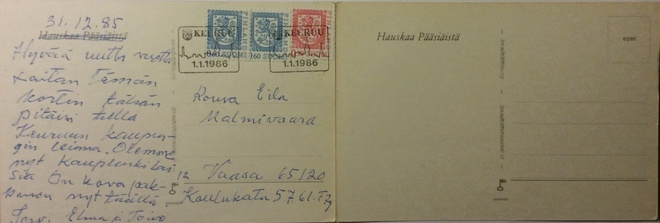 31.12.85
Hauskaa Pääsiäistä
Hyvää uutta vuotta
Laitan Tämän
kortin tähän
pitäisi tulla
Keuruun kaupun-
gin leima. Olemme
nyt kaupunkilai
sia On kova pak-
kanen nyt täällä
Terv. Elma ja Toivo
KEURUU
1.1.1986
KEURUU
1.1.1986
160
Rouva Eila
Malmivaara
Vaasa 65120
Koulukatu
Hauskaa Pääsiäistä